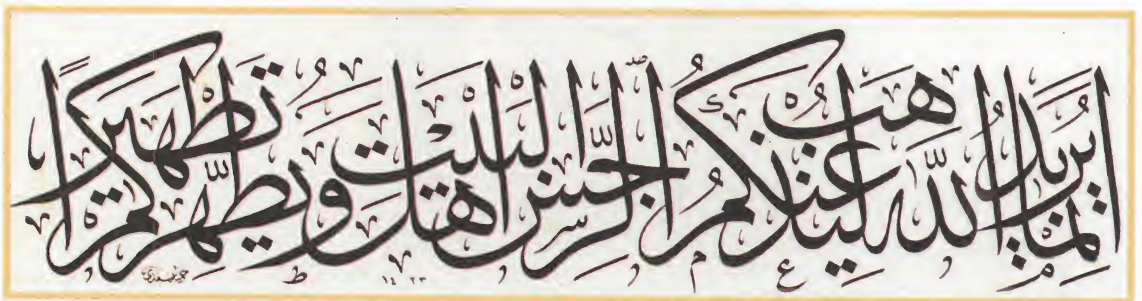 إِنَّمَا يُرِيدُ اللَّهُ لِيُذْهِبَ عَنْكُمُ الرِّجْسَ أَهْلَ الْبَيْتِ وَيُطَهِّرَكُمْ تَطْهِيرًا
١٤٢٣